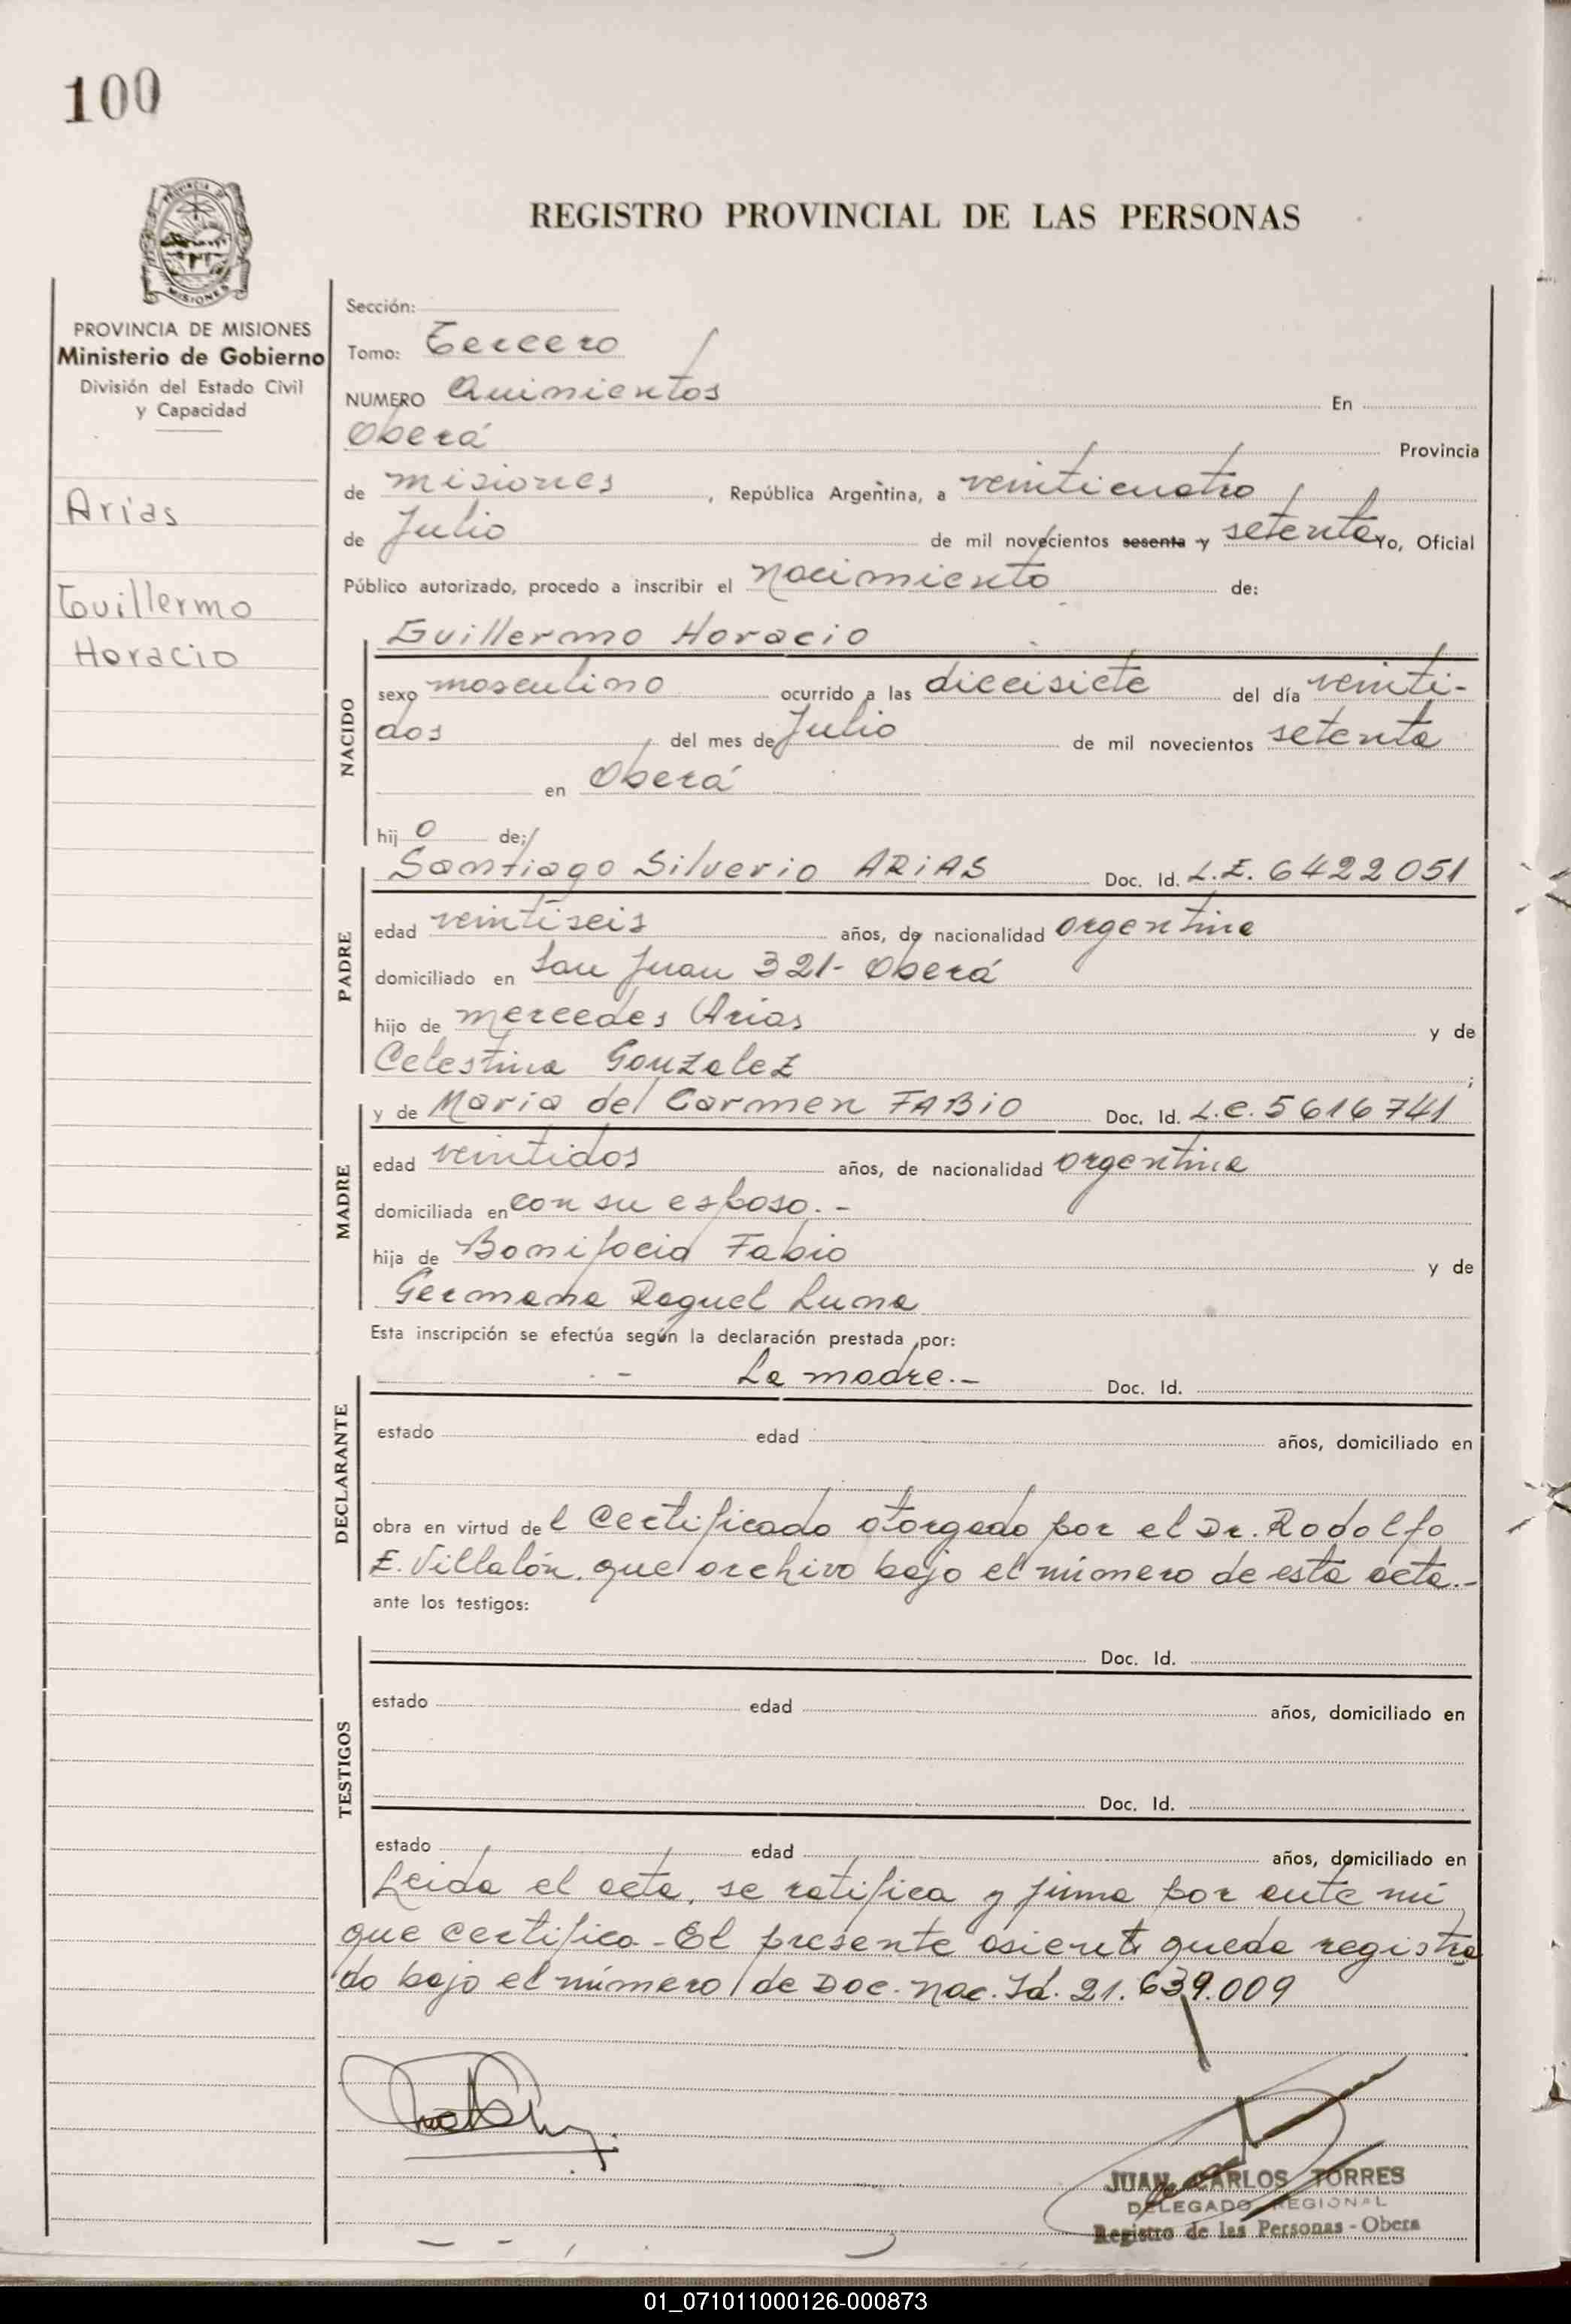 100
PROVINCIA DE MISIONES
REGISTRO PROVINCIAL DE LAS PERSONAS
PROVINCIA DE MISIONES
Ministerio de Gobierno
División del Estado Civil
y Capacidad
Arias
Guillermo
Horacio
Sección:
Tomo: Tercero
NUMERO Quinientos En
Oberá Provincia
de misiones, República Argentina, a veinticuatro
de Julio de mil novecientos sesenta y setenta Yo, Oficial
Público autorizado, procedo a inscribir el nacimiento de:
NACIDO
Guillermo Horacio
sexo masculino ocurrido a las diecisiete del día veinti-
dos del mes de Julio de mil novecientos setenta
en Oberá
hijo de:
PADRE
Santiago Silverio ARIAS Doc. Id. L.E. 6422051
edad veintiseis años, de nacionalidad argentina
domiciliado en San Juan 321- Oberá
hijo de mercedes Arias y de
Celestina Gonzalez;
MADRE
y de Maria del Carmen FABIO Doc. Id. L.C. 5616741
edad veintidos años, de nacionalidad argentina
domiciliada en con su esposo.-
hija de Bonifacio Fabio y de
Germana Raquel Luna
Esta inscripción se efectúa según la declaración prestada por:
DECLARANTE
- La madre.- Doc. Id.
estado edad años, domiciliado en
obra en virtud del Certificado otorgado por el Dr. Rodolfo
E. Villalón, que archivo bajo el número de esta acta.-
ante los testigos:
TESTIGOS
Doc. Id.
estado edad años, domiciliado en
Doc. Id.
estado edad años, domiciliado en
Leida el acta, se ratifica y firma por ante mi
que certifico - El presente asiento queda registra
do bajo el número de Doc. Nac. Id. 21.639.009
JUAN CARLOS TORRES
DELEGADO REGIONAL
Registro de las Personas - Obera
01_071011000126-000873